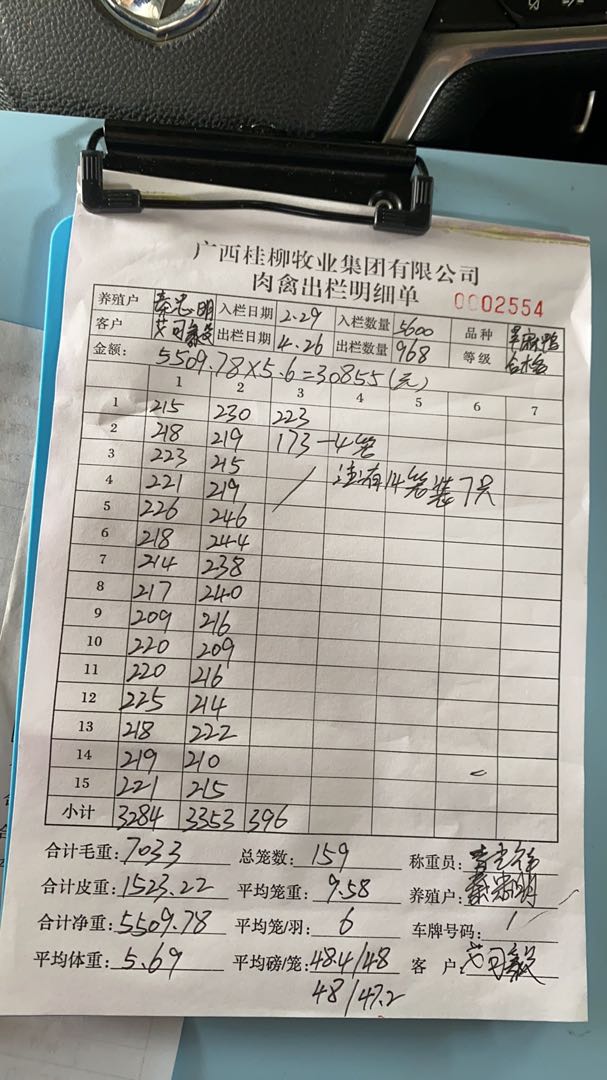 广西桂柳牧业集团有限公司
肉禽出栏明细单 0002554
养殖户 秦忠明 入栏日期 2.29 入栏数量 5600 品种
客户 入栏日期 4.26 出栏数量 968 等级 合格
金额: 5509.78×5.6=30855(元)
1 2 3 4 5 6 7
1 215 230 223
2 218 219 173-4笼
3 223 215
4 221 219 / 注:有14笼装7只
5 226 246
6 218 244
7 214 238
8 217 240
9 209 216
10 220 209
11 220 216
12 225 214
13 218 222
14 219 210
15 221 215
小计 3284 3353 396
合计毛重: 7033 总笼数: 159 称重员:
合计皮重: 1523.22 平均笼重: 9.58 养殖户: 秦忠明
合计净重: 5509.78 平均笼/羽: 6 车牌号码: /
平均体重: 5.69 平均磅/笼: 48.4/48 客 户:
48/47.2